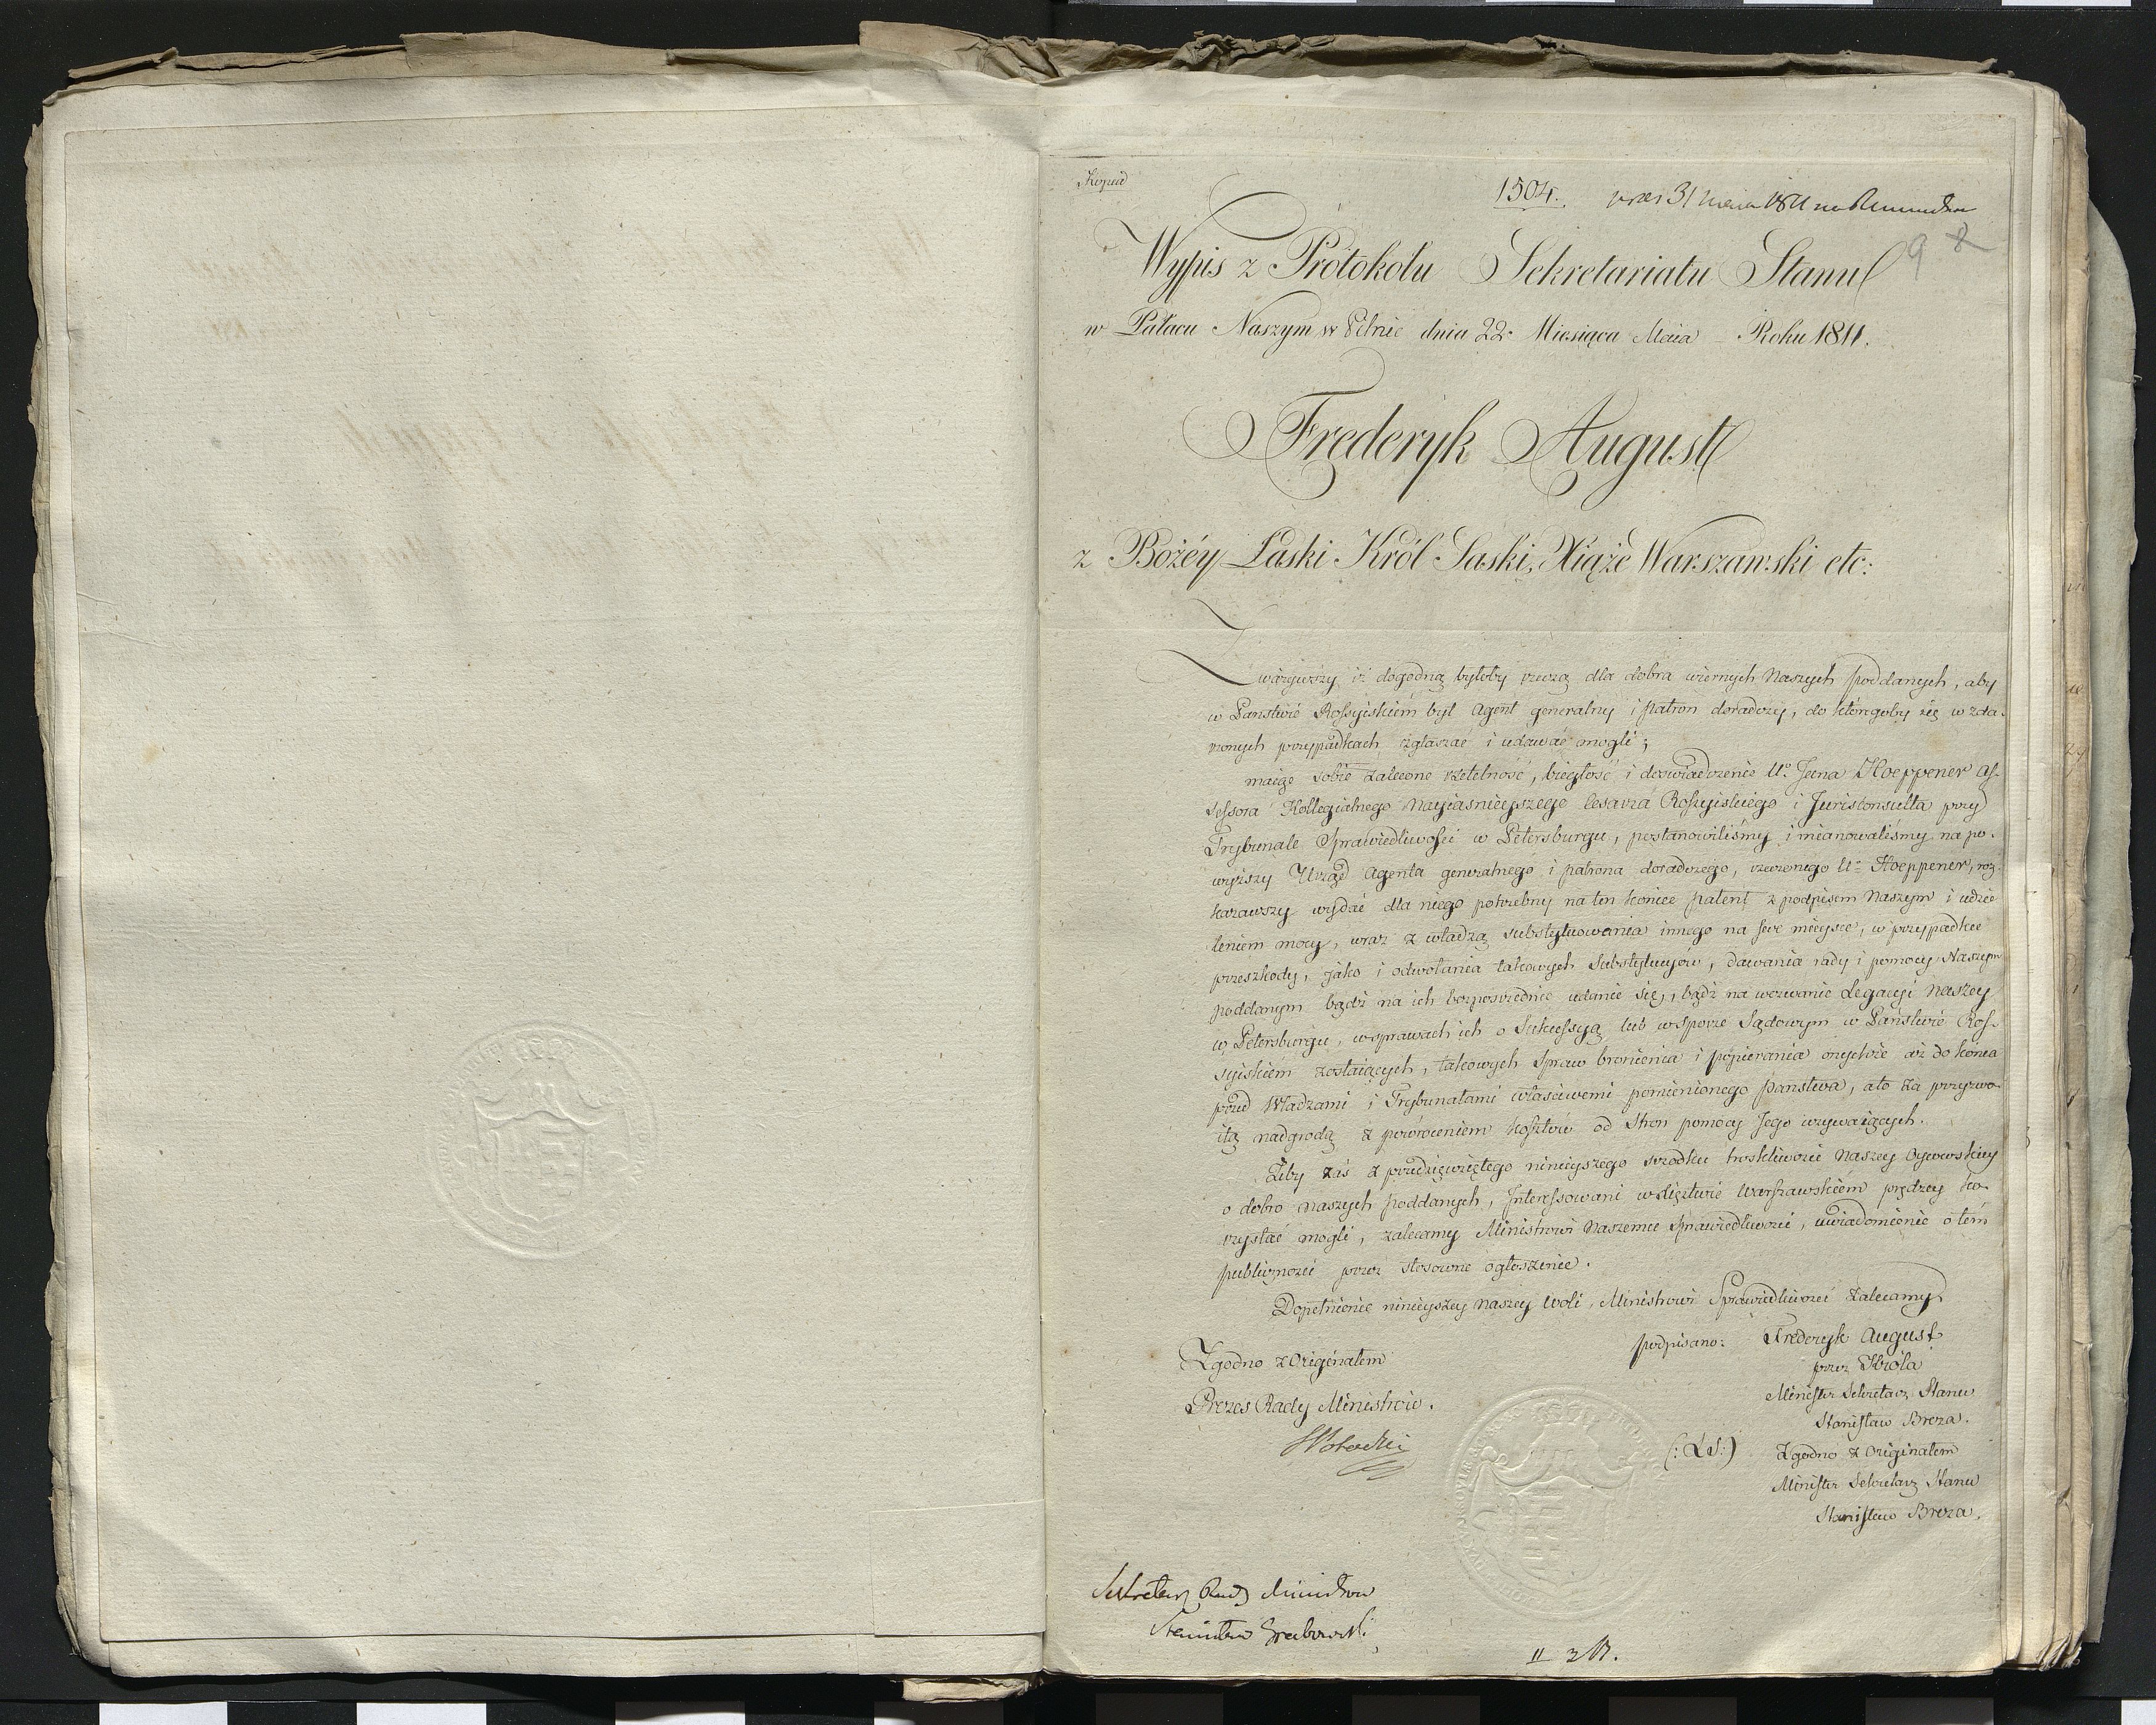 Kopia
1504. 31 maia 1811
9 8
Wypis z Protokołu Sekretariatu Stanu
w Pałacu Naszym w Pilnic dnia 22. Miesiąca Maia Roku 1811.
Frederyk August
z Bożéy Łaski Król Saski, Xiąże Warszawski etc:
Zważywszy iż dogodną byłoby rzeczą dla dobra wiernych Naszych poddanych, aby
w Państwie Rossyiskiém był Agent generalny i patron doradczy, do któregoby się w zda-
rzonych przypadkach zgłaszać i udawać mogli;
maiąc sobie zalecone rzetelność, biegłość i doswiadczenie Uo. Jana Hoeppener As-
sessora Kollegialnego Nayiasnieyszego Cesarza Rossyiskiego i Juriskonsulta przy
Trybunale Sprawiedliwości w Petersburgu, postanowiliśmy i mianowaliśmy na po-
wyższy Urząd Agenta generalnego i patrona doradczego, rzeczonego Uo Hoeppener, roz-
kazawszy wydać dla niego potrzebny na ten koniec patent z podpisem Naszym i udzie-
leniem mocy, wraz z władzą substytuowania innego na swe mieysce, w przypadku
przeszkody, jako i odwołania takowych Substytucyów, dawania rady i pomocy Naszym
poddanym bądź na ich bezposrednie udanie się, bądź na wezwanie Legacyi Naszey
w Petersburgu, w sprawach ich o Sukcessyą lub w sporze Sądowym w Państwie Ros-
syiskiém zostaiących, takowych Spraw bronienia i popierania onychże aż do końca
przed Władzami i Trybunałami właściwemi pomienionego Państwa, a to za przyzwo-
itą nadgrodą z powróceniem kosztów od Stron pomocy Jego wzywaiących.
Żeby zaś z przedsięwziętego ninieyszego srzodku troskliwości Naszey Oycowskiey
o dobro Naszych poddanych, Interessowani w Xięztwie Warszawskiém prędzey ko-
rzystać mogli, zalecamy Ministrowi Naszemu Sprawiedliwości, uwiadomienie o tém
publiczności przez stosowne ogłoszenie.
Dopełnienie ninieyszey Naszey Woli, Ministrowi Sprawiedliwości zalecamy
podpisano: Frederyk August
przez Króla
Minister Sekretarz Stanu
Stanisław Breza.
(: LS:) Zgodno z Originałem
Minister Sekretarz Stanu
Stanisław Breza.
Zgodno z Originałem
Prezes Rady Ministrów.
SPotocki
Sekretarz Rady Ministrów
Stanisław Grabowski